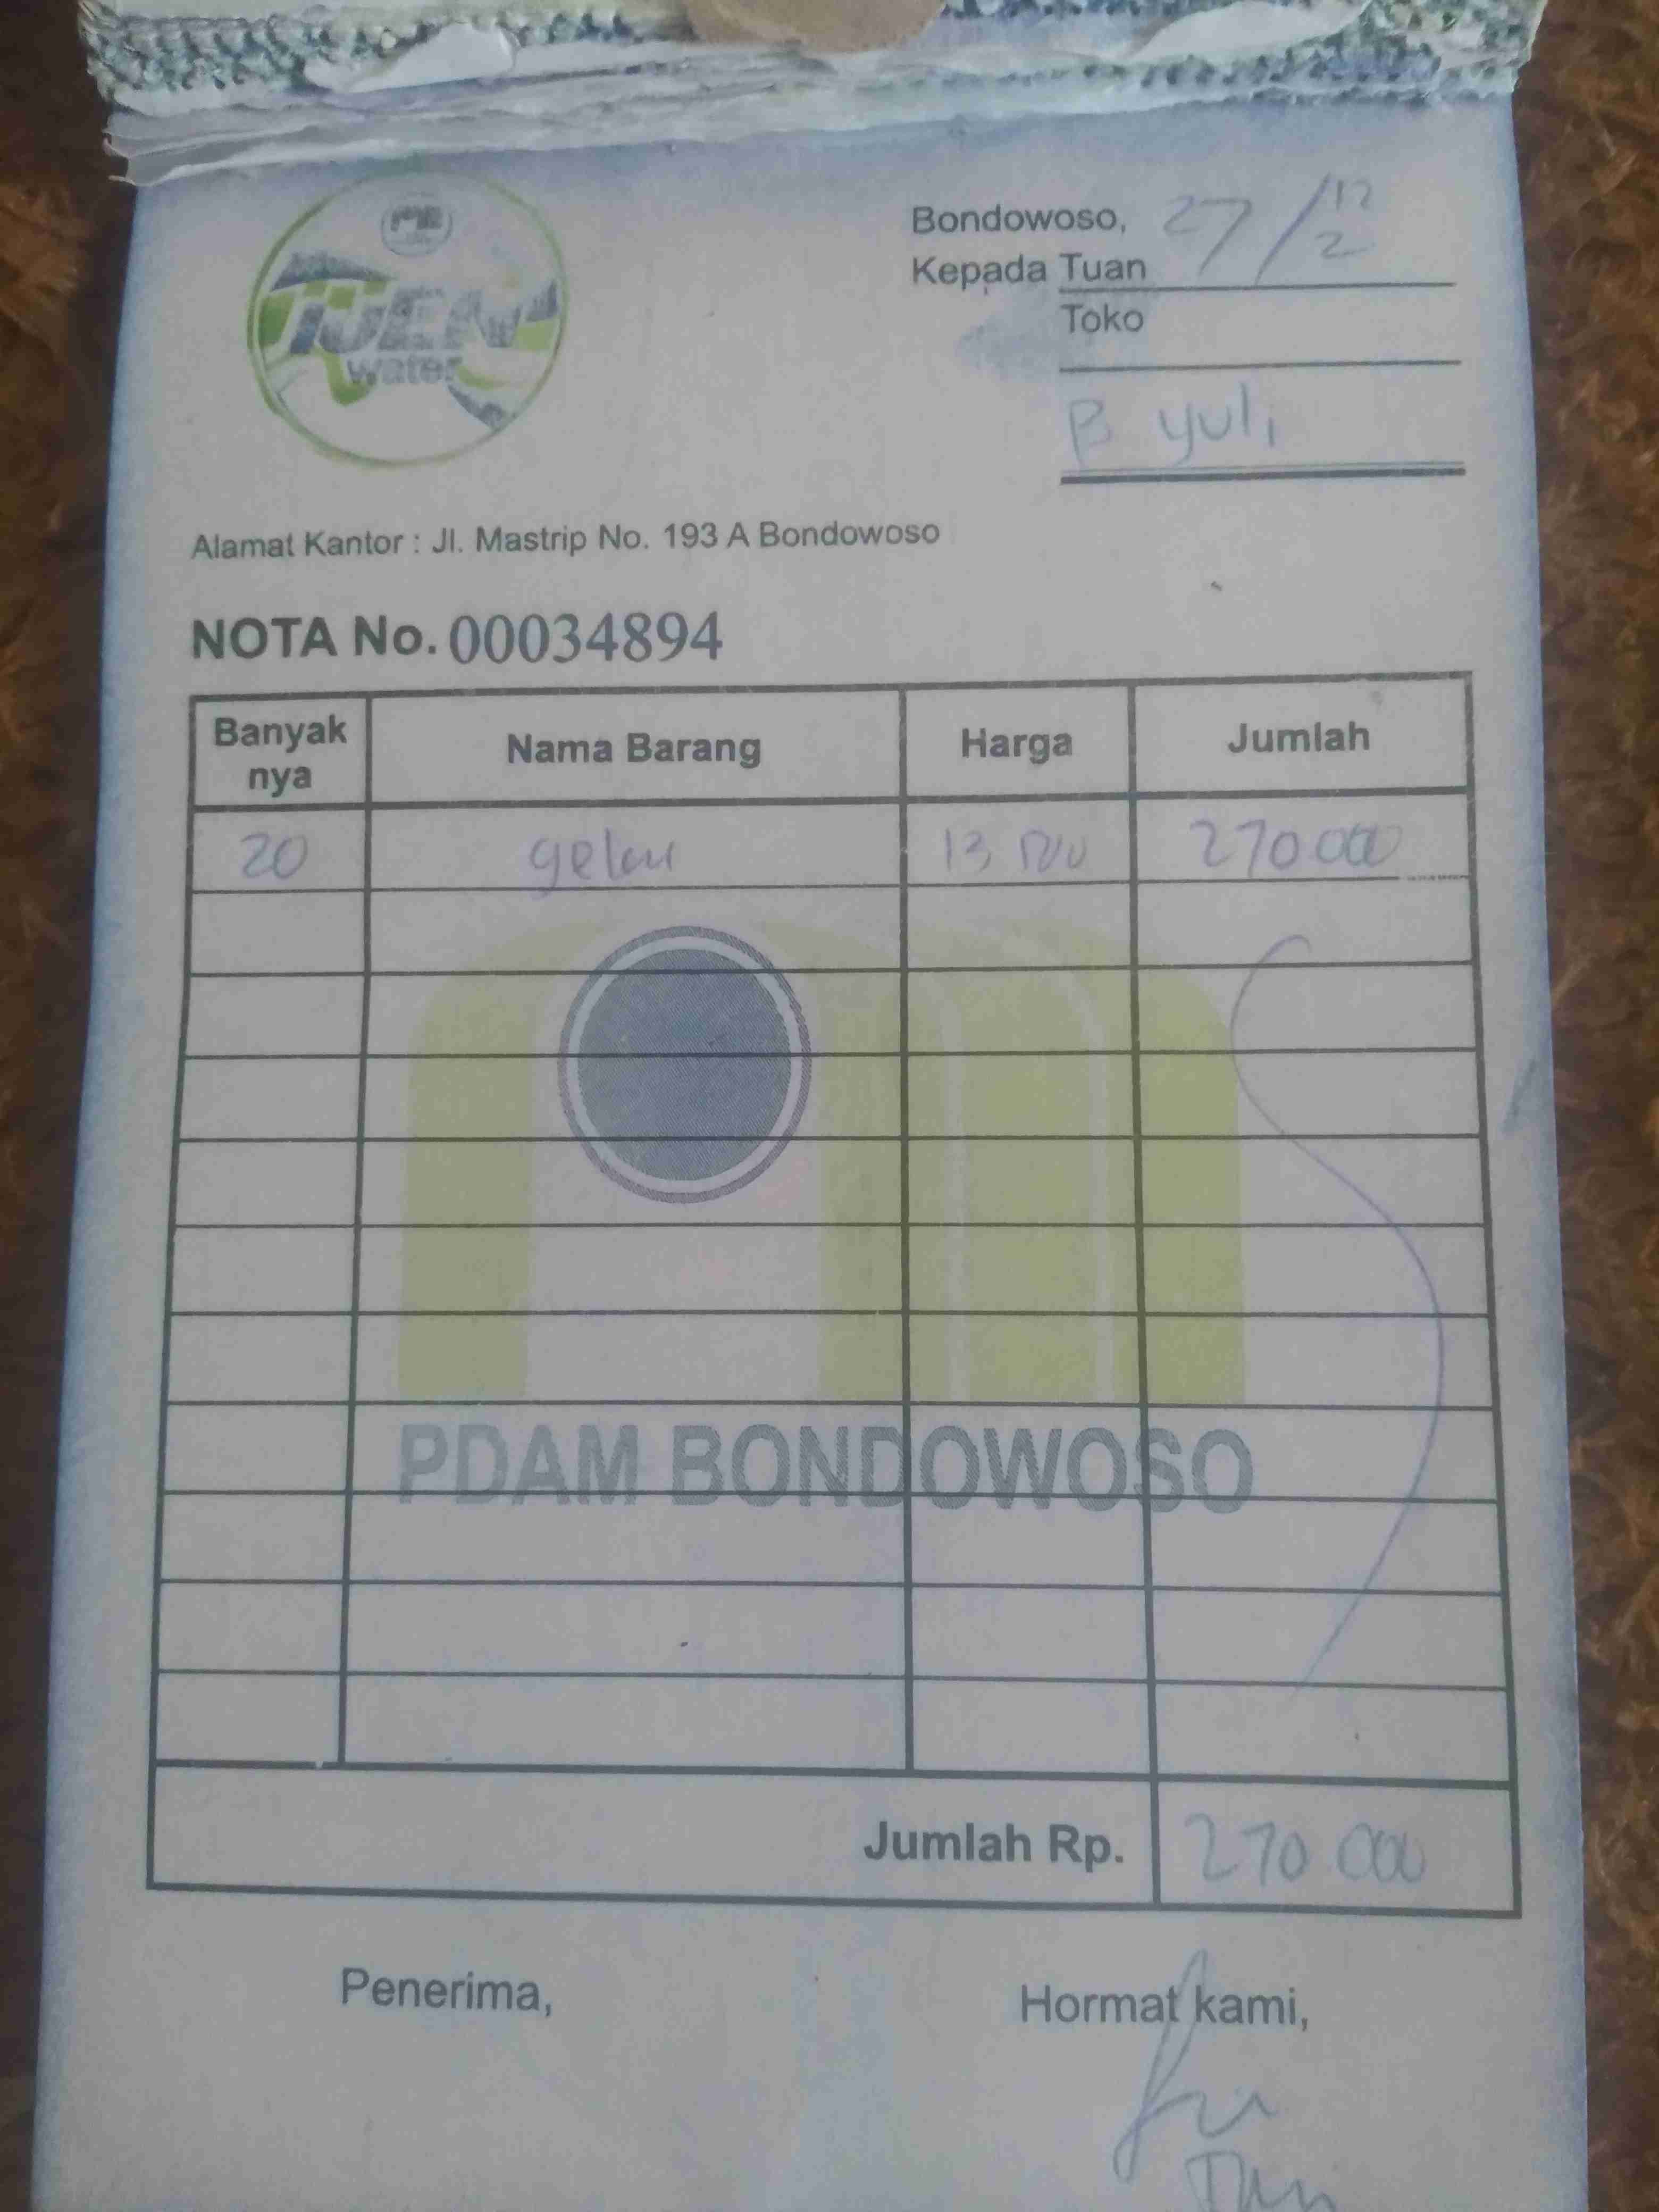 IJEN
water
Bondowoso, 27/12 2
Kepada Tuan
Toko
B yuli
Alamat Kantor : Jl. Mastrip No. 193 A Bondowoso
NOTA No. 00034894
Banyak nya Nama Barang Harga Jumlah
20 gelas 13 500 270 000
PDAM BONDOWOSO
Jumlah Rp. 270 000
Penerima, Hormat kami,